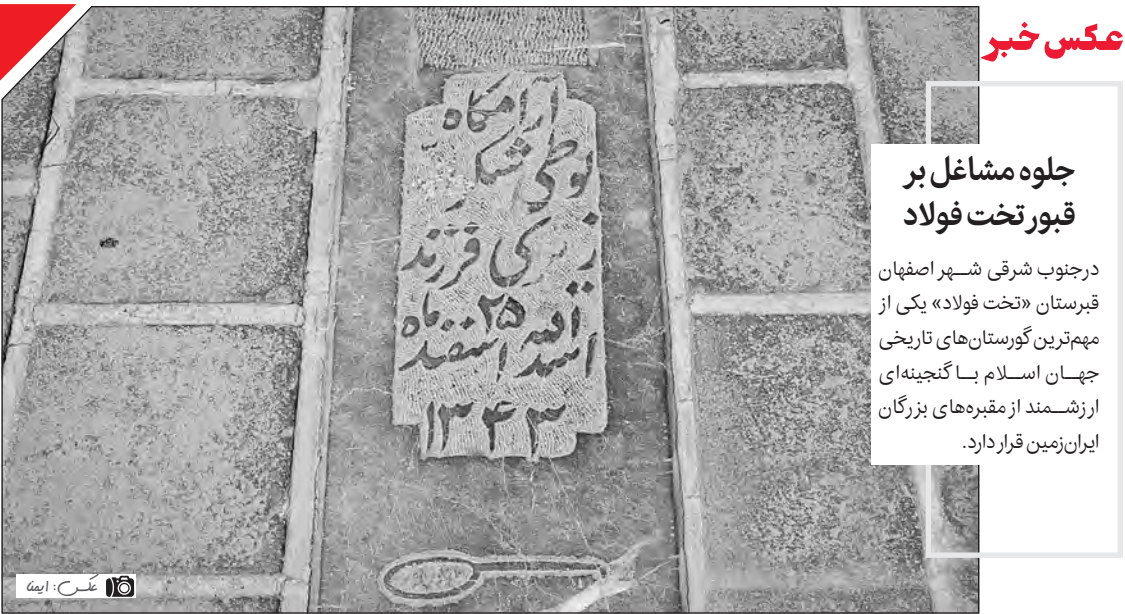 عکس خبر
جلوه مشاغل بر
قبور تخت فولاد
درجنوب شرقی شهر اصفهان
قبرستان «تخت فولاد» یکی از
مهم‌ترین گورستان‌های تاریخی
جهان اسلام با گنجینه‌ای
ارزشمند از مقبره‌های بزرگان
ایران‌زمین قرار دارد.
آرامگاه
فرزند
اسدالله ۲۵ اسفند ماه
۱۳۴۳
عکس: ایمنا